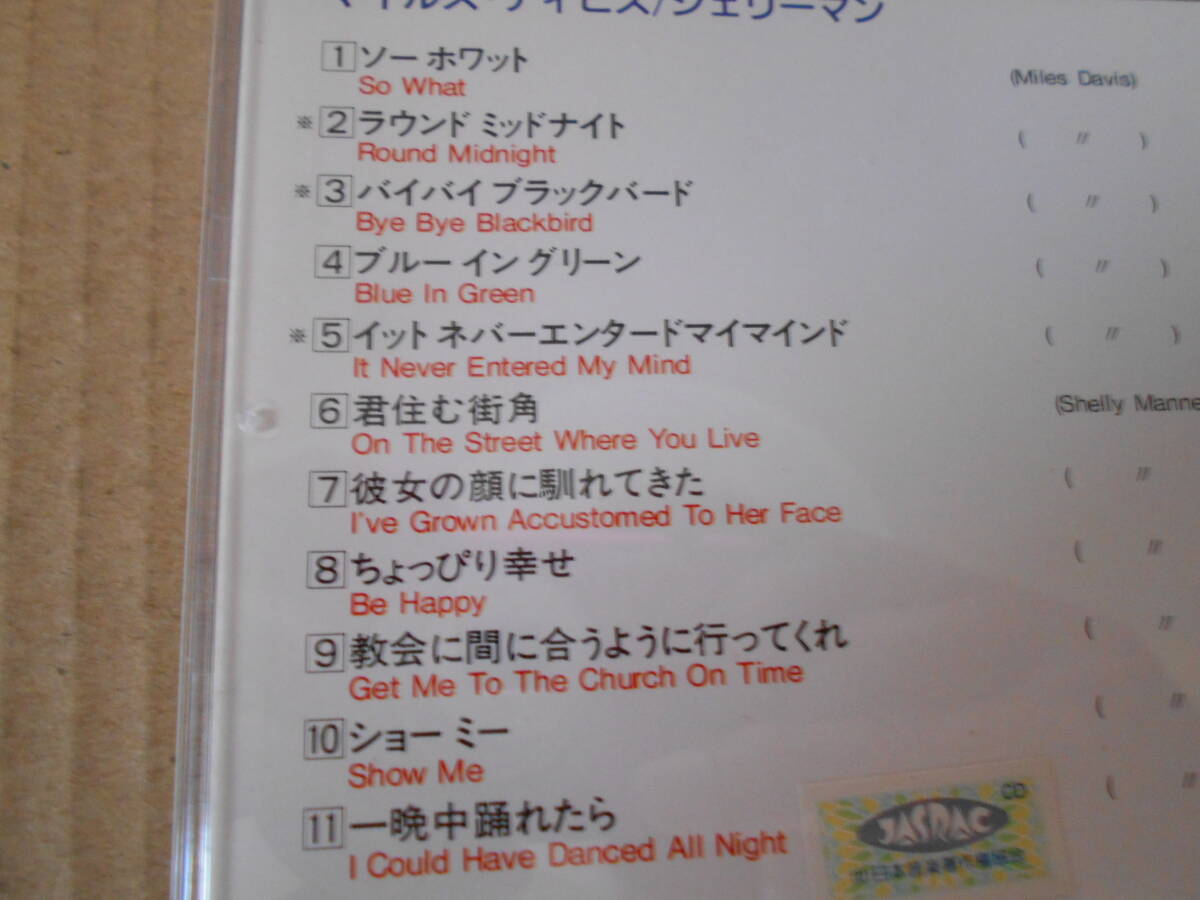 マイルス・デイビス/シェリーマン
1 ソー ホワット
So What
(Miles Davis)
※ 2 ラウンド ミッドナイト
Round Midnight
( 〃 )
※ 3 バイバイ ブラックバード
Bye Bye Blackbird
( 〃 )
4 ブルー イン グリーン
Blue In Green
( 〃 )
※ 5 イット ネバーエンタードマイマインド
It Never Entered My Mind
( 〃 )
6 君住む街角
On The Street Where You Live
(Shelly Manne
7 彼女の顔に馴れてきた
I've Grown Accustomed To Her Face
( 〃
8 ちょっぴり幸せ
Be Happy
( 〃
9 教会に間に合うように行ってくれ
Get Me To The Church On Time
( 〃
10 ショー ミー
Show Me
( 〃
11 一晩中踊れたら
I Could Have Danced All Night
( 〃
CD
JASRAC